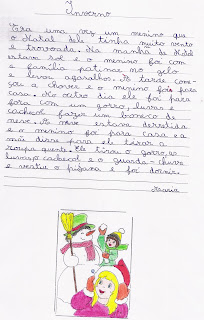 Inverno
Era uma vez um menino que
o Natal dele tinha muito vento
e trovoada. Na manhã de Natal
estava sol e o menino foi com
a família patinar no gelo
e levou agasalhos. À tarde come-
çou a chover e o menino foi para
casa. No outro dia ele foi para
fora com um gorro, luvas e
cachecol fazer um boneco de
neve. A neve estava derretida
e o menino foi para casa e a
mãe disse para ele tirar a
roupa quente. Ele tirou o gorro, as
luvas, o cachecol e o guarda-chuva
e vestiu o pijama e foi dormir.